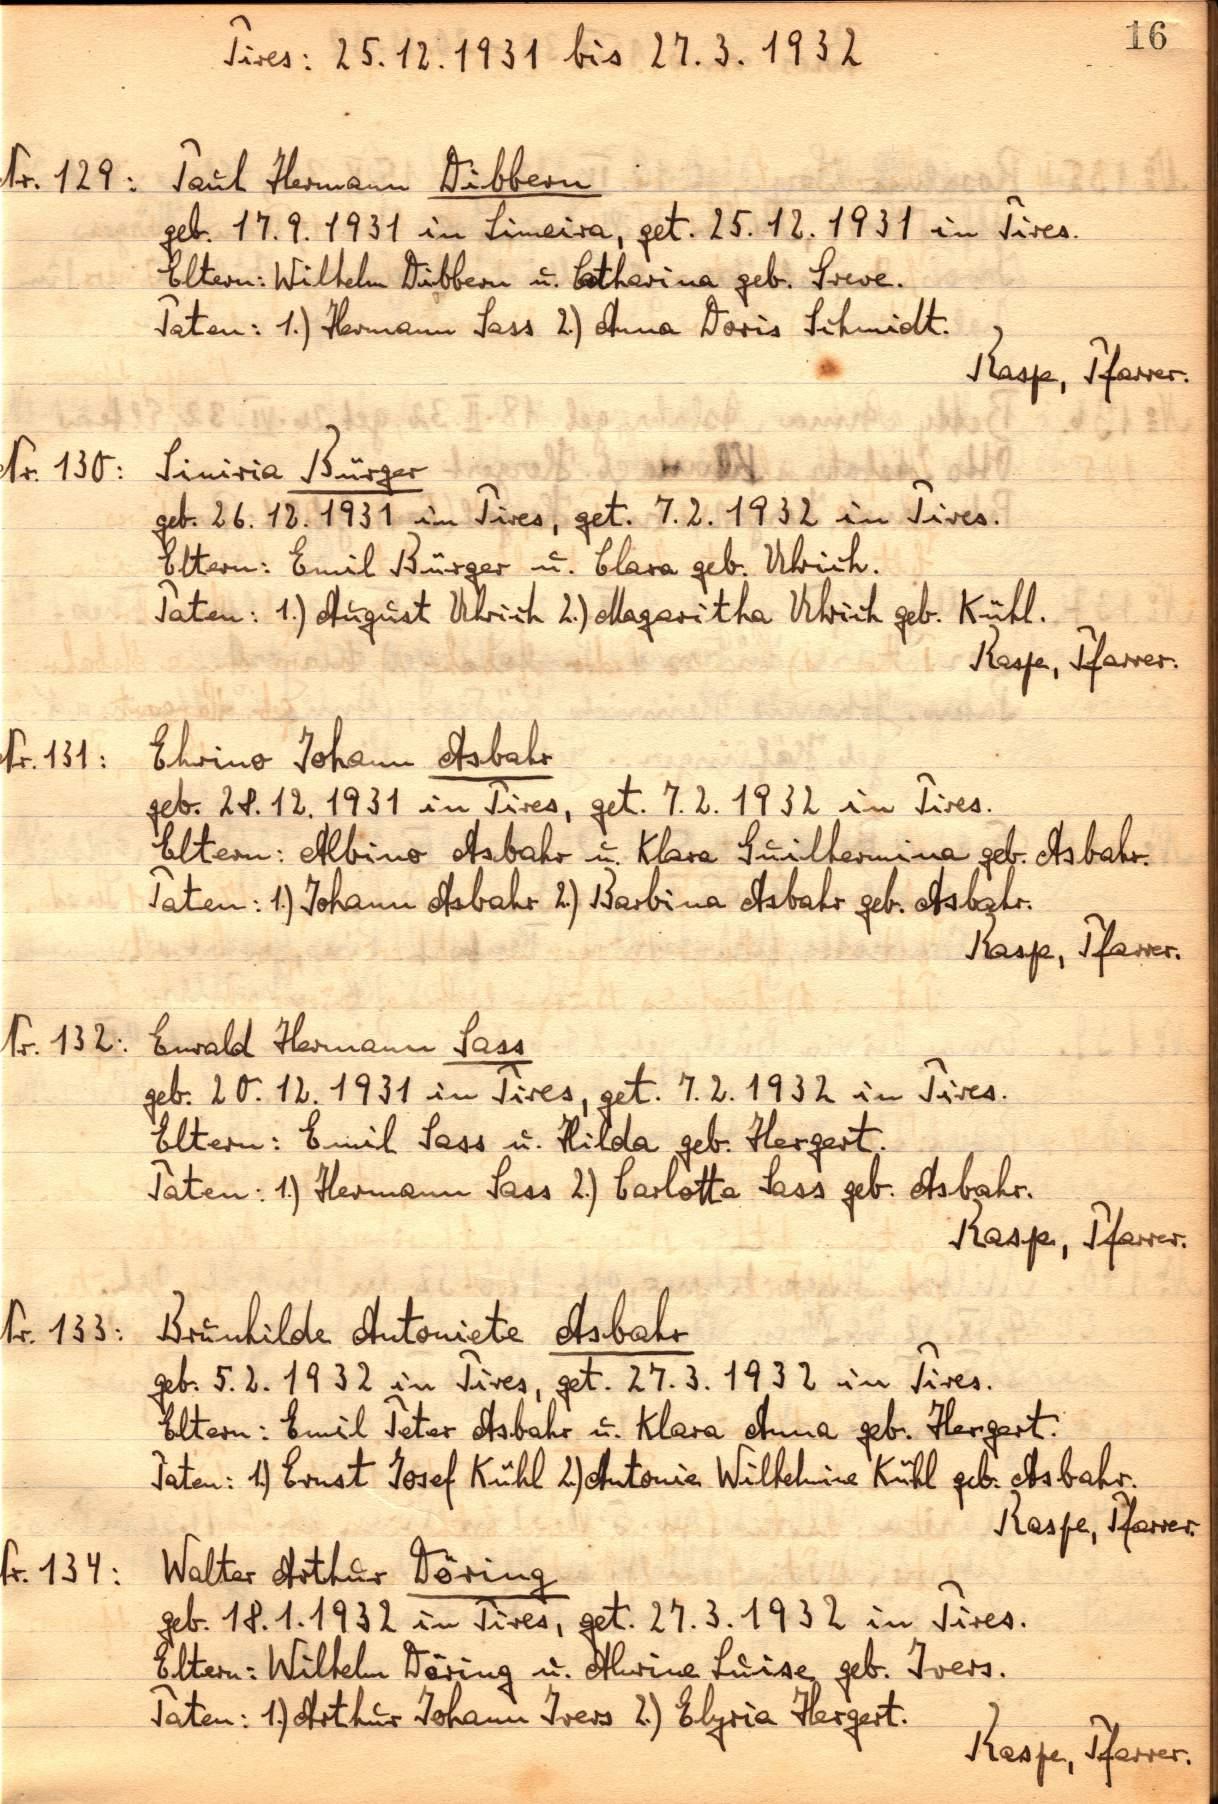 16
Pires: 25.12.1931 bis 27.3.1932
Nr. 129: Paul Hermann Dibbern
geb. 17.9.1931 in Limeira, get. 25.12.1931 in Pires.
Eltern: Wilhelm Dibbern u. Catharina geb. Greve.
Paten: 1.) Hermann Sass 2.) Anna Doris Schmidt.
Raspe, Pfarrer.
Nr. 130: Siniria Bürger
geb. 26.12.1931 in Pires, get. 7.2.1932 in Pires.
Eltern: Emil Bürger u. Clara geb. Ulrich.
Paten: 1.) August Ulrich 2.) Magaritha Ulrich geb. Kühl.
Raspe, Pfarrer.
Nr. 131: Ehrino Johann Asbahr
geb. 28.12.1931 in Pires, get. 7.2.1932 in Pires.
Eltern: Albino Asbahr u. Klara Guilhermina geb. Asbahr.
Paten: 1.) Johann Asbahr 2.) Barbina Asbahr geb. Asbahr.
Raspe, Pfarrer.
Nr. 132: Ewald Hermann Sass
geb. 20.12.1931 in Pires, get. 7.2.1932 in Pires.
Eltern: Emil Sass u. Hilda geb. Hergert.
Paten: 1.) Hermann Sass 2.) Carlotta Sass geb. Asbahr.
Raspe, Pfarrer.
Nr. 133: Brunhilde Antoniete Asbahr
geb. 5.2.1932 in Pires, get. 27.3.1932 in Pires.
Eltern: Emil Peter Asbahr u. Klara Anna geb. Hergert.
Paten: 1.) Ernst Josef Kühl 2.) Antonie Wilhelmine Kühl geb. Asbahr.
Raspe, Pfarrer.
Nr. 134: Walter Arthur Döring
geb. 18.1.1932 in Pires, get. 27.3.1932 in Pires.
Eltern: Wilhelm Döring u. Alwine Luise geb. Ivers.
Paten: 1.) Arthur Johann Ivers 2.) Elyria Hergert.
Raspe, Pfarrer.